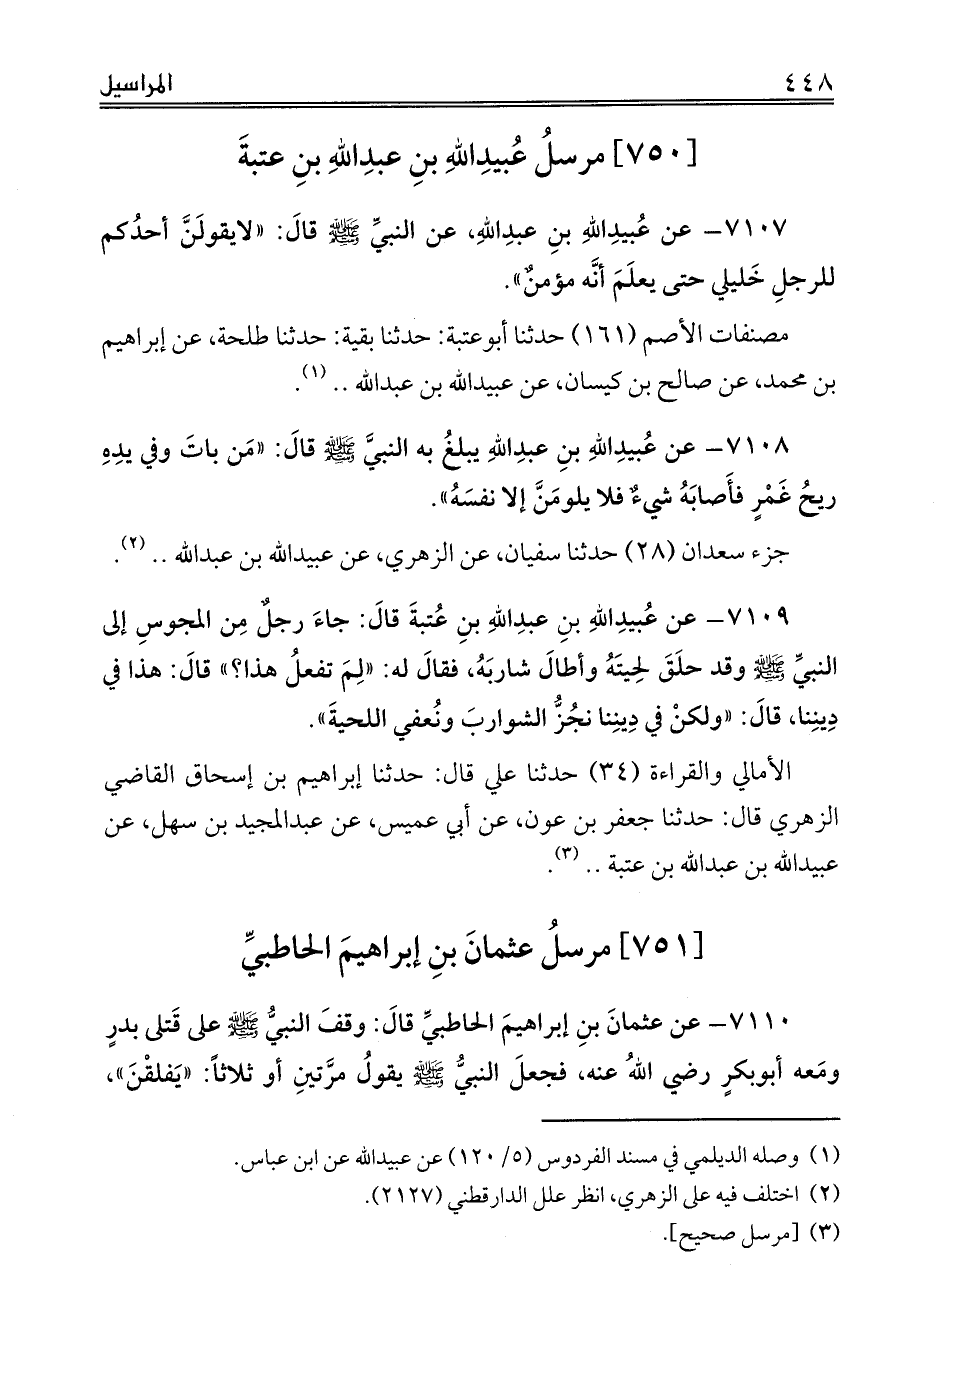 ٤٤٨ المراسيل
[٧٥٠] مرسلُ عُبيدِاللهِ بنِ عبدِاللهِ بنِ عتبةَ
٧١٠٧– عن عُبيدِاللهِ بنِ عبدِاللهِ، عن النبيِّ ﷺ قالَ: «لايقولَنَّ أحدُكم
للرجلِ خَليلي حتى يعلَمَ أنَّه مؤمنٌ».
مصنفات الأصم (١٦١) حدثنا أبوعتبة: حدثنا بقية: حدثنا طلحة، عن إبراهيم
بن محمد، عن صالح بن كيسان، عن عبيدالله بن عبدالله .. (١).
٧١٠٨– عن عُبيدِاللهِ بنِ عبدِاللهِ يبلغُ به النبيَّ ﷺ قالَ: «مَن باتَ وفي يدِهِ
ريحُ غَمْرٍ فأَصابَهُ شيءٌ فلا يلومَنَّ إلا نفسَهُ».
جزء سعدان (٢٨) حدثنا سفيان، عن الزهري، عن عبيدالله بن عبدالله .. (٢).
٧١٠٩– عن عُبيدِاللهِ بنِ عبدِاللهِ بنِ عُتبةَ قالَ: جاءَ رجلٌ مِن المجوسِ إلى
النبيِّ ﷺ وقد حلَقَ لحيتَهُ وأطالَ شاربَهُ، فقالَ له: «لِمَ تفعلُ هذا؟» قالَ: هذا في
دِينِنا، قالَ: «ولكنْ في دِينِنا نجُزُّ الشواربَ ونُعفي اللحيةَ».
الأمالي والقراءة (٣٤) حدثنا علي قال: حدثنا إبراهيم بن إسحاق القاضي
الزهري قال: حدثنا جعفر بن عون، عن أبي عميس، عن عبدالمجيد بن سهل، عن
عبيدالله بن عبدالله بن عتبة .. (٣).
[٧٥١] مرسلُ عثمانَ بنِ إبراهيمَ الحاطبيِّ
٧١١٠– عن عثمانَ بنِ إبراهيمَ الحاطبيِّ قالَ: وقفَ النبيُّ ﷺ على قَتلى بدرٍ
ومَعه أبوبكرٍ رضي اللهُ عنه، فجعلَ النبيُّ ﷺ يقولُ مرَّتينِ أو ثلاثاً: «يَفلقْنَ»،
(١) وصله الديلمي في مسند الفردوس (٥/ ١٢٠) عن عبيدالله عن ابن عباس.
(٢) اختلف فيه على الزهري، انظر علل الدارقطني (٢١٢٧).
(٣) [مرسل صحيح].